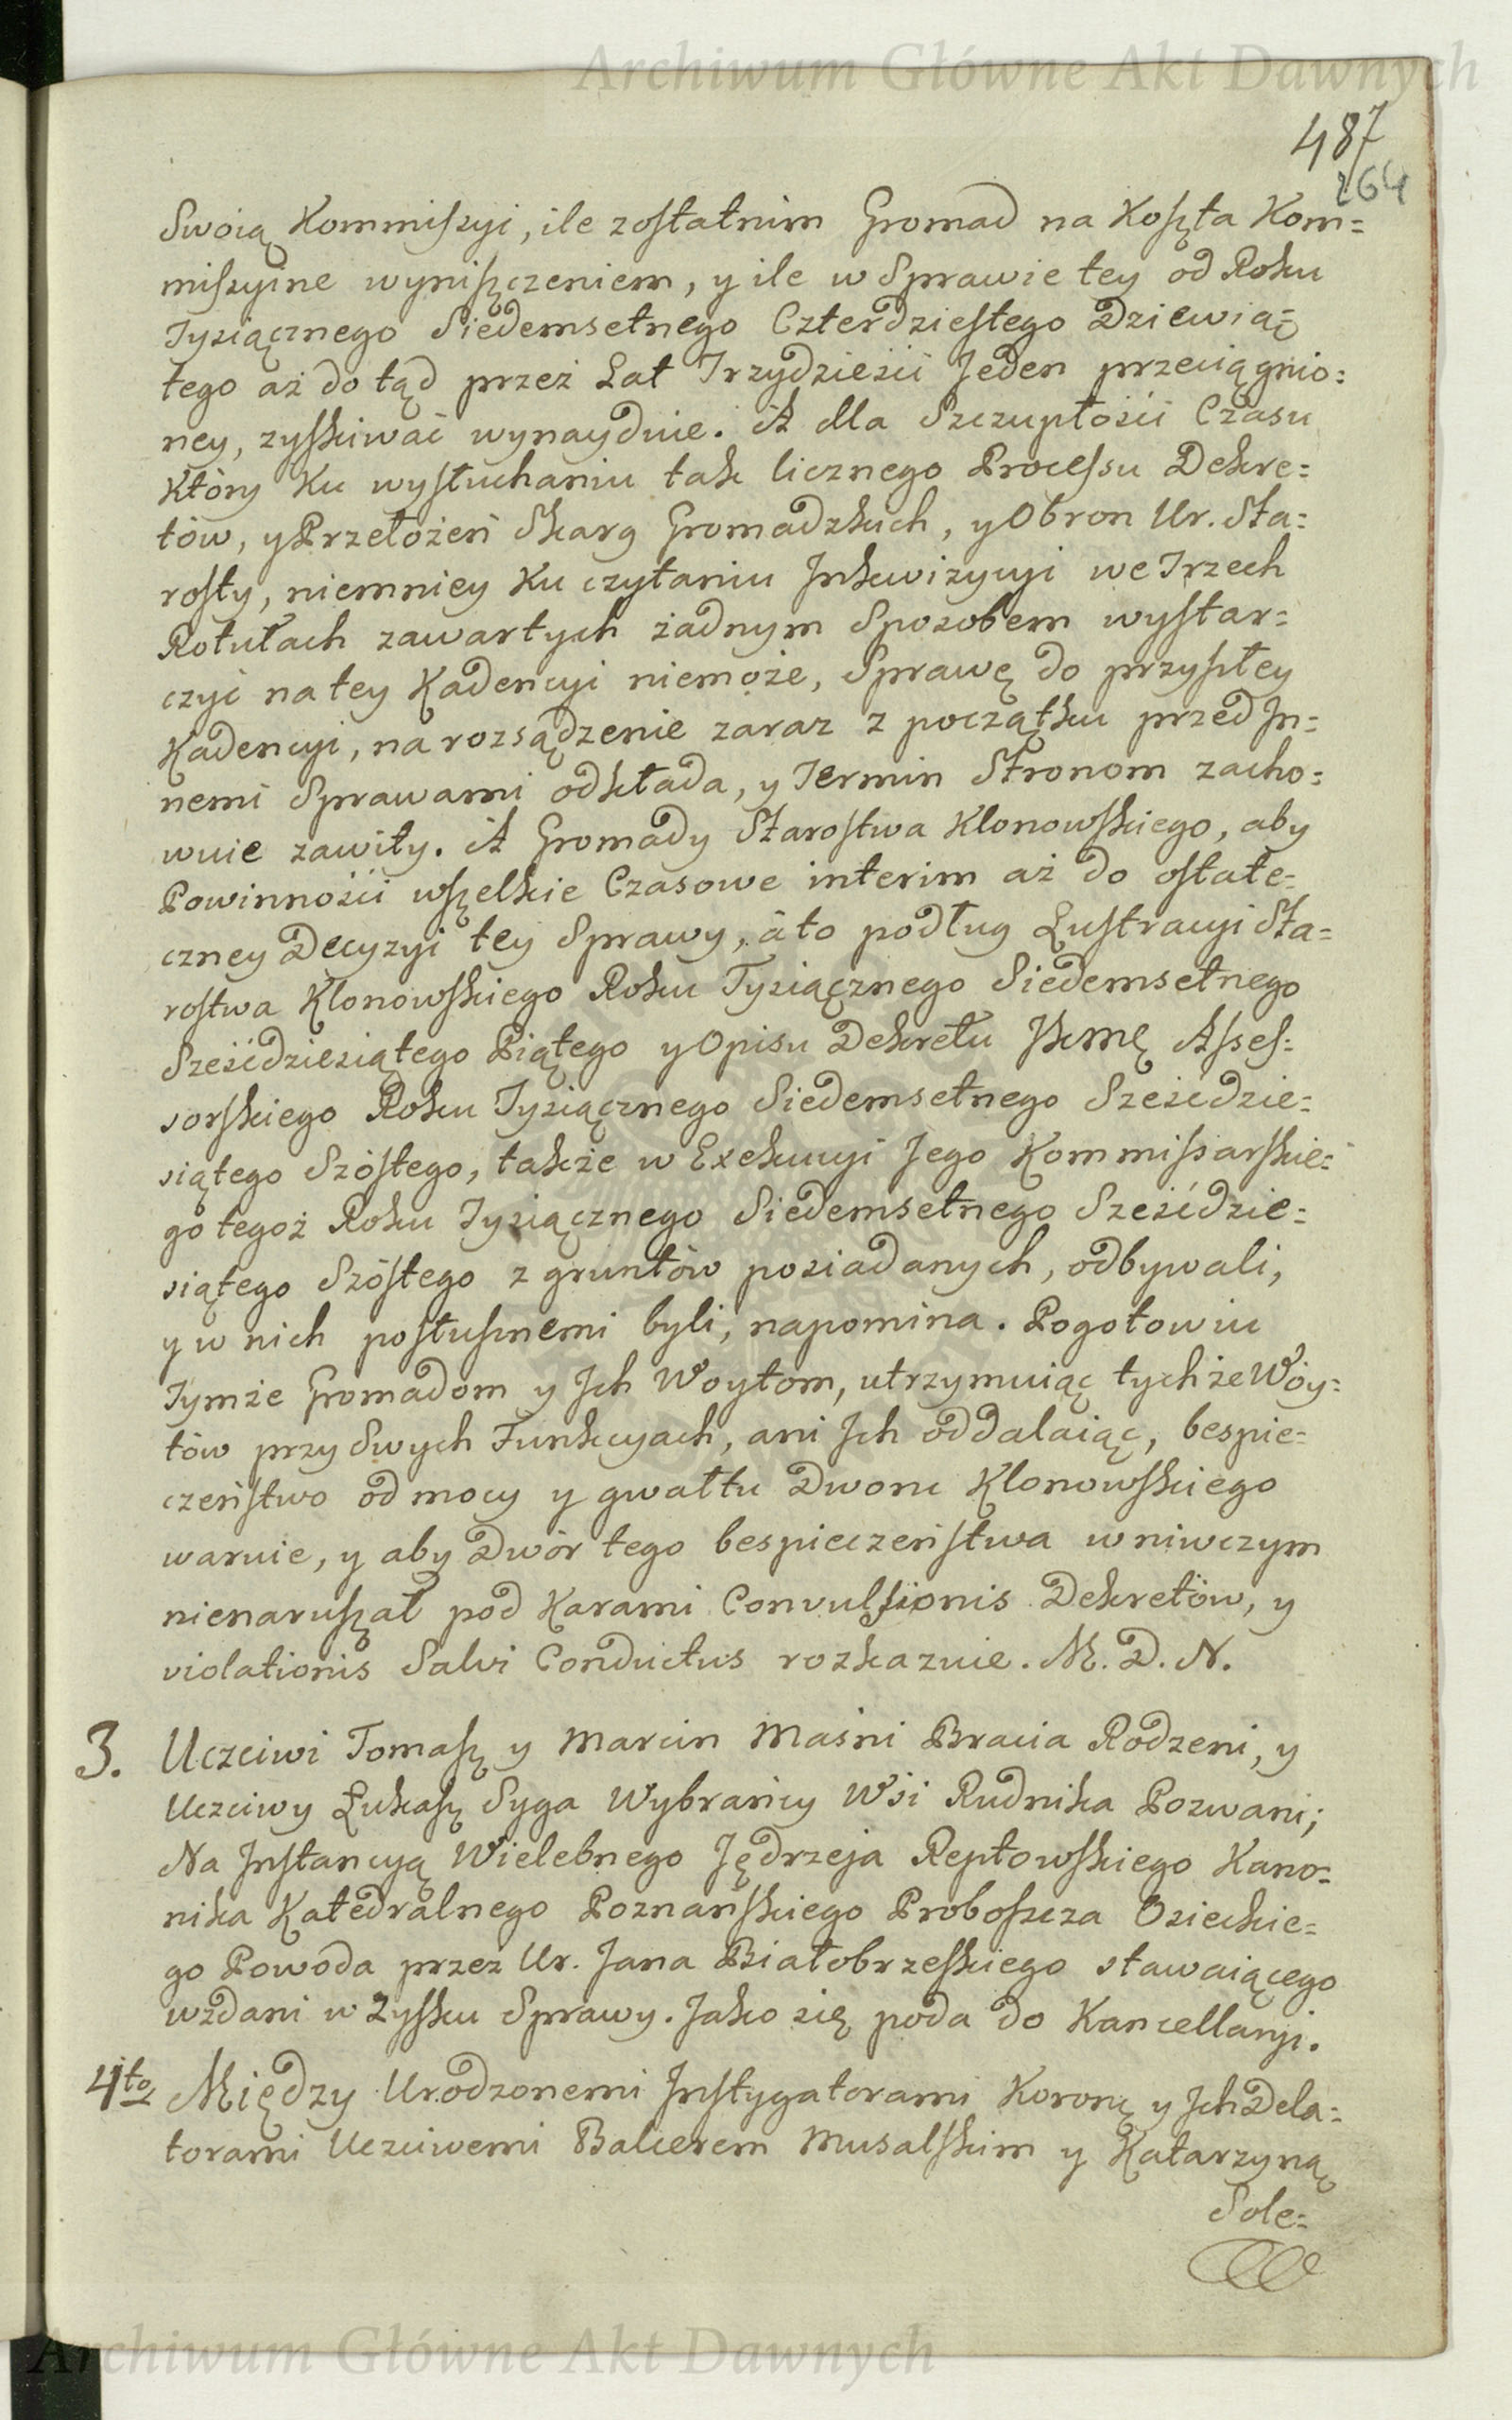 Archiwum Główne Akt Dawnych
487
264
Swoią Kommiszyi, ile z ostatnim Gromad na Koszta Kom=
miszyine wyniszczeniem, y ile w Sprawie tey od Roku
Tysiącznego Siedemsetnego Czterdziestego Dziewią=
tego aż do tąd przez Lat Trzydzieści Jeden przeciągnio=
ney, zyskiwać wynayduie. A dla Szczupłości Czasu
Który Ku wysłuchaniu tak licznego Processu Dekre=
tów, y Przełożeń Skarg Gromadzkich, y Obron Ur. Sta=
rosty, niemniey Ku czytaniu Inkwizycyi we Trzech
Rotułach zawartych żadnym Sposobem wystar=
czyć na tey Kadencyi niemoże, Sprawę do przyszłey
Kadencyi, na rozsądzenie zaraz z początku przed In=
nemi Sprawami odkłada, y Termin Stronom zacho=
wuie zawity. A Gromady Starostwa Klonowskiego, aby
Powinności wszelkie Czasowe interim aż do ostate=
czney Decyzyi tey Sprawy, á to podług Lustracyi Sta=
rostwa Klonowskiego Roku Tysiącznego Siedemsetnego
Sześćdziesiątego Piątego y Opisu Dekretu JKmę Asses=
sorskiego Roku Tysiącznego Siedemsetnego Sześćdzie=
siątego Szóstego, także w Exekucyi Jego Kommissarskie=
go tegoż Roku Tysiącznego Siedemsetnego Sześćdzie=
siątego Szóstego z gruntów posiadanych, odbywali,
y w nich posłusznemi byli, napomina. Pogotowiu
Tymże Gromadom y Jch Woytom, utrzymuiąc tychże Wóy=
tów przy Swych Funkcyach, ani Jch oddalaiąc, bespie=
czeństwo od mocy y gwałtu Dworu Klonowskiego
waruie, y aby Dwór tego bespieczeństwa w niwczym
nienaruszał pod Karami Convulsionis Dekretów, y
violationis Salvi Conductus rozkazuie. M. D. N.
3. Uczciwi Tomasz y Marcin Maśni Bracia Rodzeni, y
Uczciwy Łukasz Syga Wybrańcy Wsi Rudnika Pozwani;
Na Instancyą Wielebnego Jędrzeja Reptowskiego Kano=
nika Katedralnego Poznańskiego Proboszcza Osieckie=
go Powoda przez Ur. Jana Białobrzeskiego stawaiącego
wzdani w Zysku Sprawy. Jako się poda do Kancellaryi.
4to Między Urodzonemi Instygatorami Koronę y Jch Dela=
torami Uczciwemi Balcerem Musalskim y Katarzyną
Sole=
Archiwum Główne Akt Dawnych